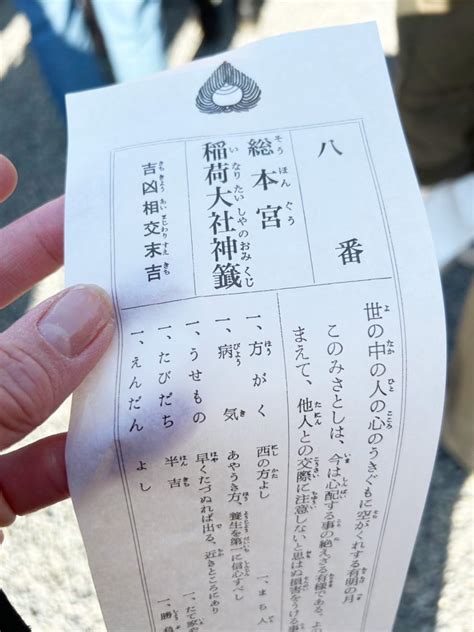 八番
総本宮
稲荷大社神籤
吉凶相交末吉
世の中の人の心のうきぐもに空がくれする有明の月
このみさとしは、今は心配する事の絶えざる有様である。よ
まえて、他人との交際に注意しないと思はぬ損害をうける事
一、方がく　西の方よし
一、病気　あやうき方、養生を第一に信心すべし
一、うせもの　早くたづぬれば出る、近きところにあり
一、たびだち　半吉
一、えんだん　よし
一、まち人
一、たて家や
一、勝負